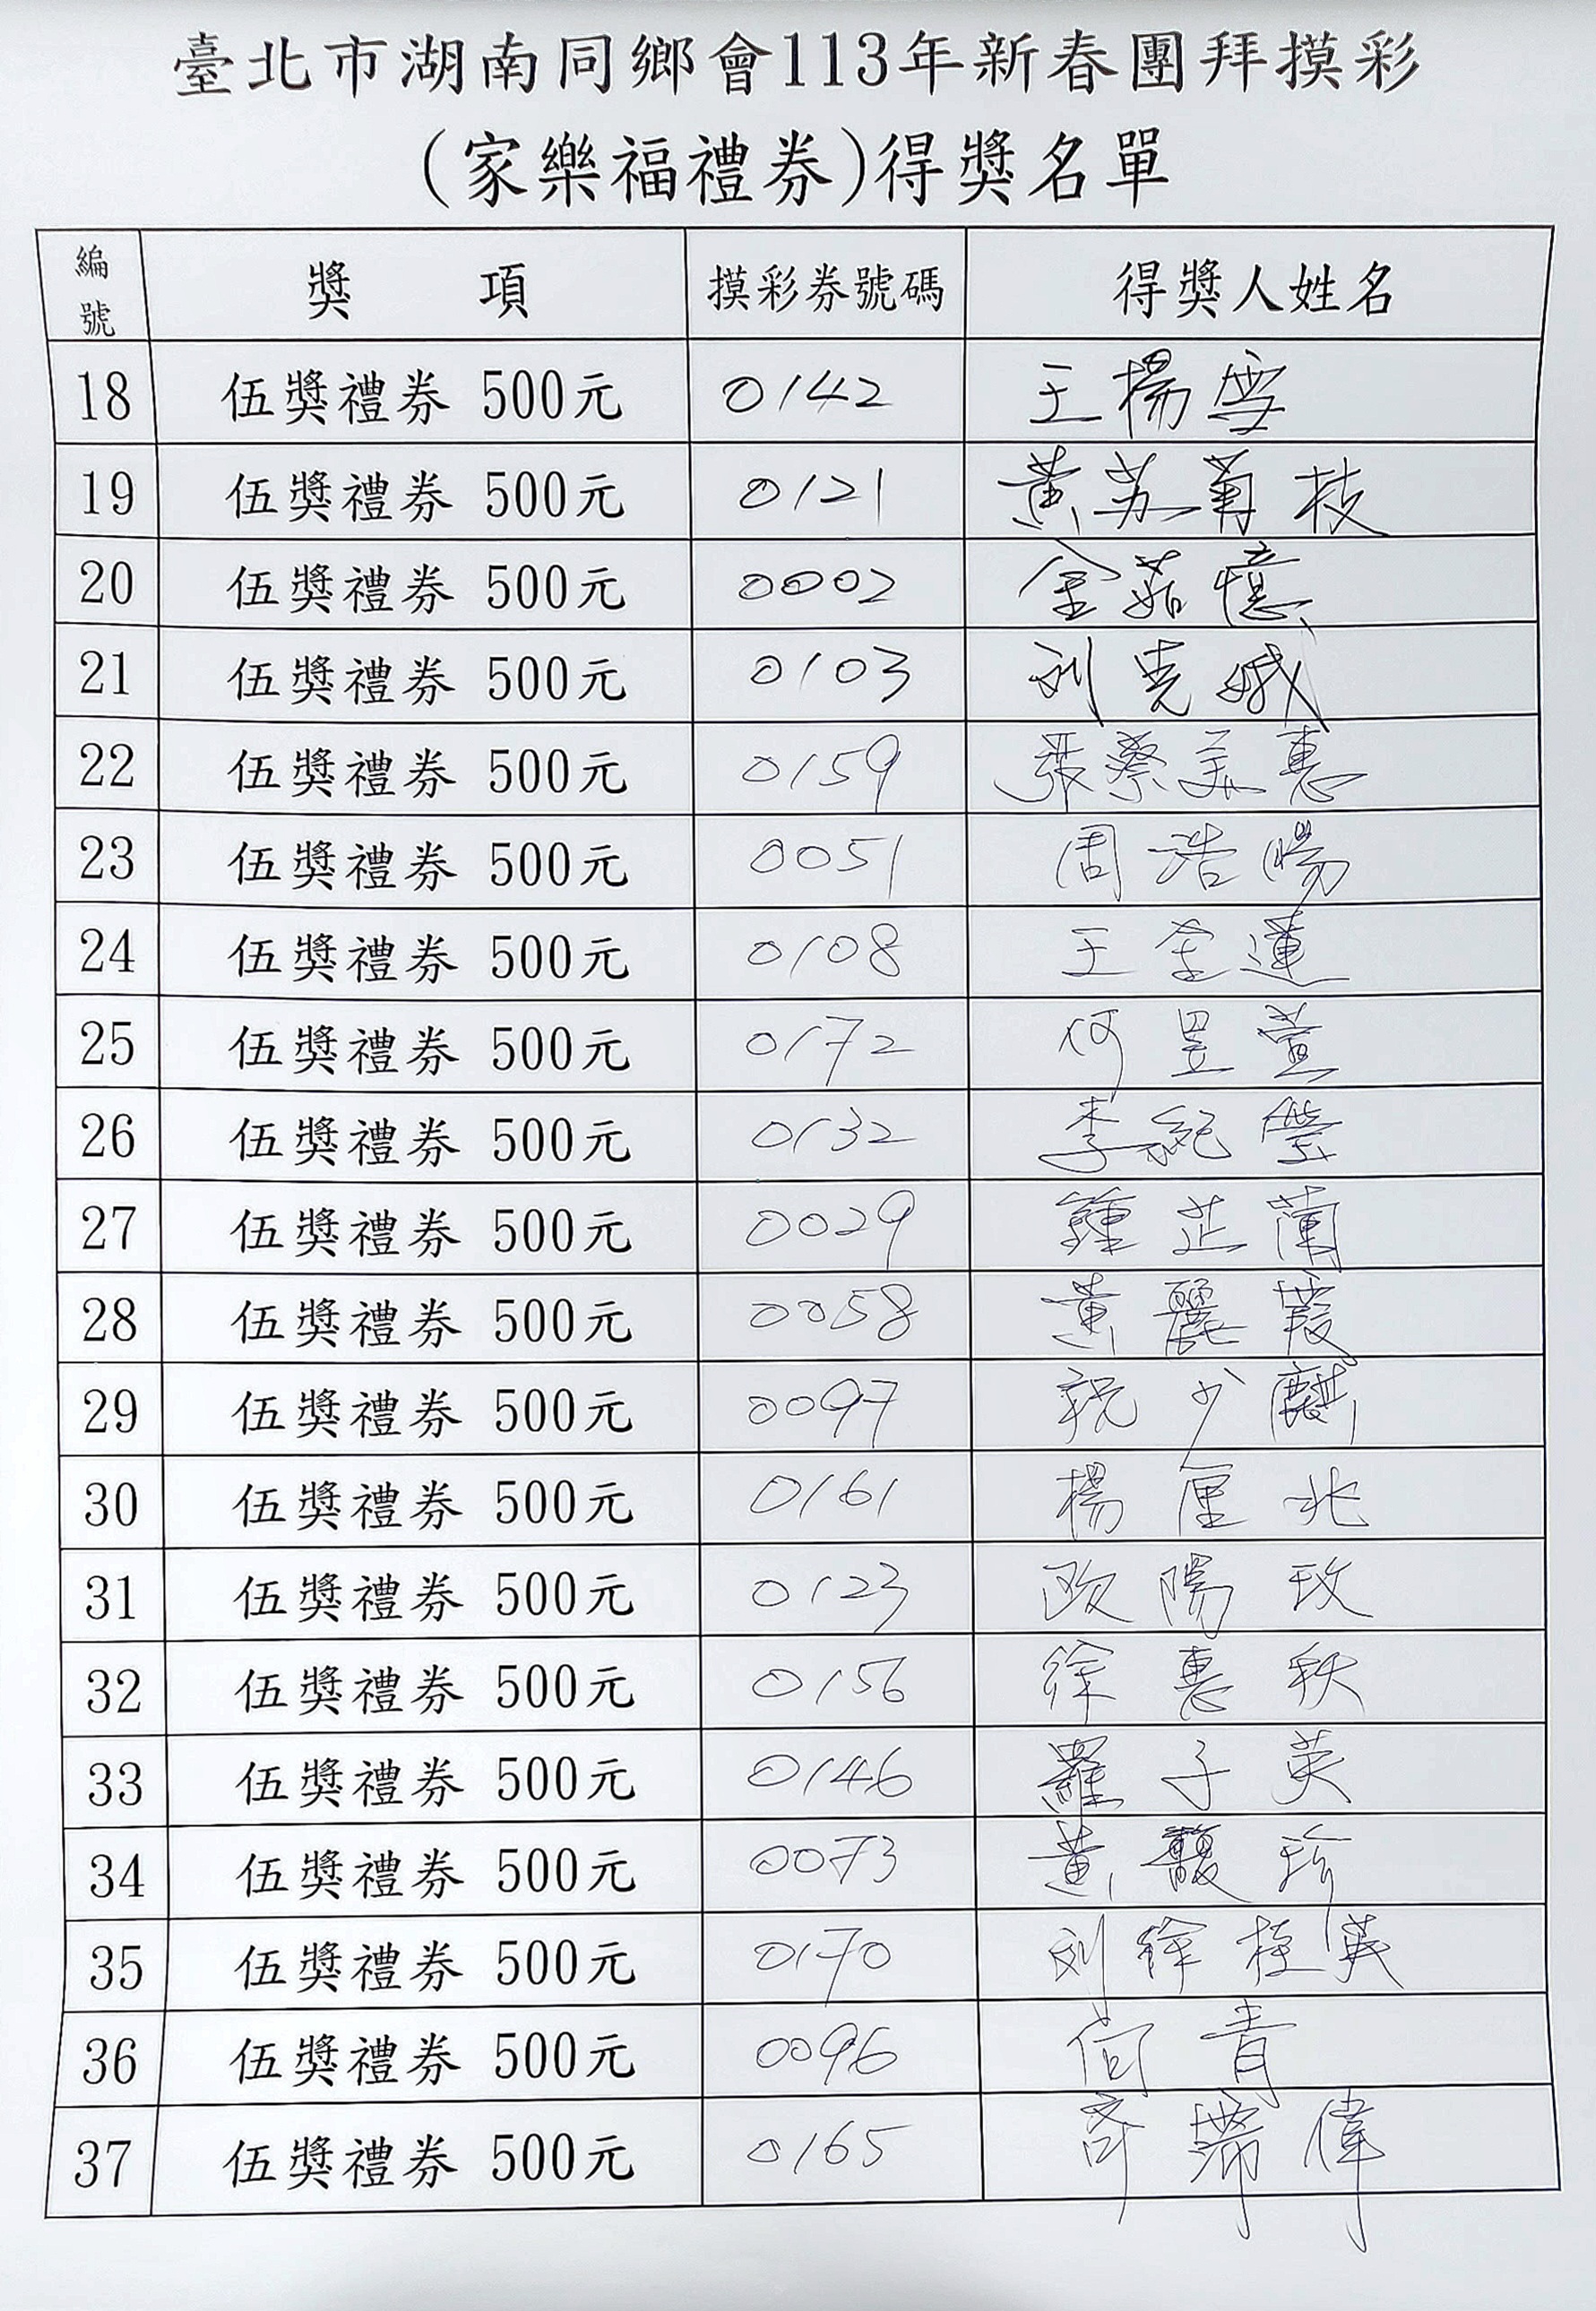 臺北市湖南同鄉會113年新春團拜摸彩
(家樂福禮券)得獎名單
編號 獎 項 摸彩券號碼 得獎人姓名
18 伍獎禮券 500元 0142 王楊雪
19 伍獎禮券 500元 0121 黃苏菊枝
20 伍獎禮券 500元 0002 金茹憶
21 伍獎禮券 500元 0103 刘克城
22 伍獎禮券 500元 0159 張蔡美惠
23 伍獎禮券 500元 0051 周浩暘
24 伍獎禮券 500元 0108 王金蓮
25 伍獎禮券 500元 0172 何昱萱
26 伍獎禮券 500元 0132 李純瑩
27 伍獎禮券 500元 0029 鍾芷蘭
28 伍獎禮券 500元 0058 黃麗霞
29 伍獎禮券 500元 0097 祝少麒
30 伍獎禮券 500元 0161 楊厘北
31 伍獎禮券 500元 0123 欧陽玫
32 伍獎禮券 500元 0156 徐惠秋
33 伍獎禮券 500元 0146 羅子英
34 伍獎禮券 500元 0073 黃馥珍
35 伍獎禮券 500元 0170 刘徐桂英
36 伍獎禮券 500元 0096 何青
37 伍獎禮券 500元 0165 齐瑞偉